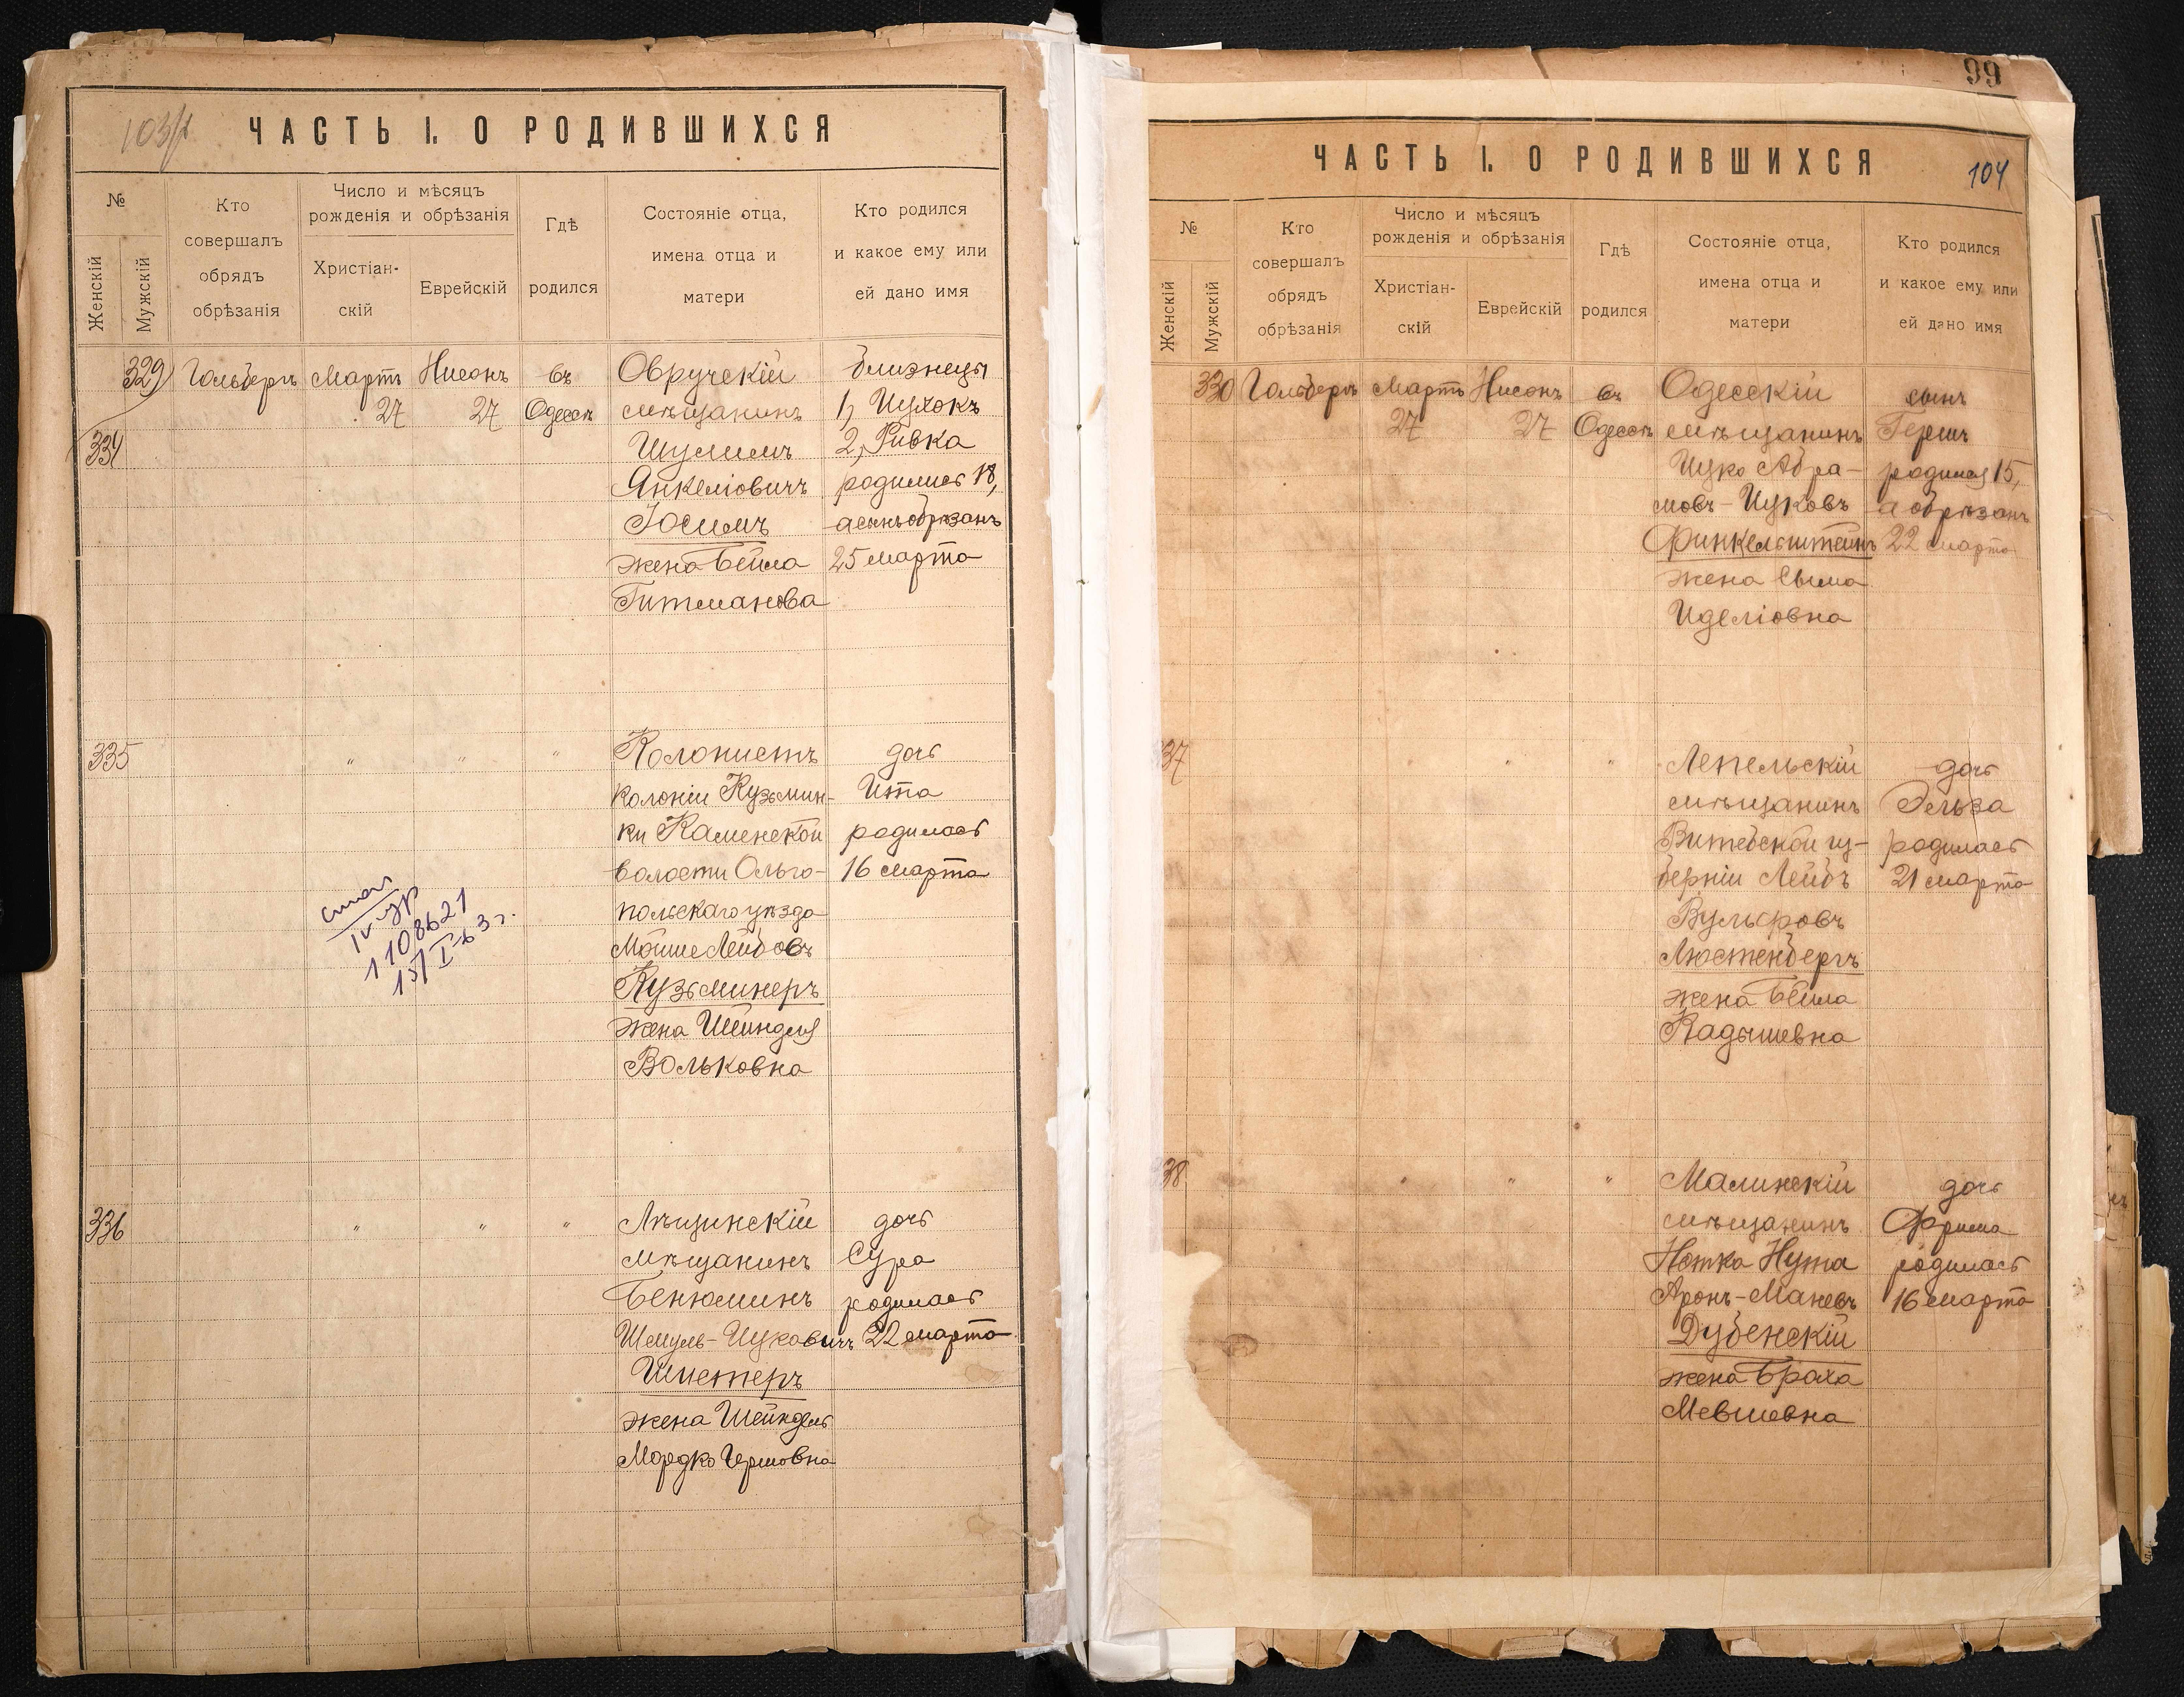 103/1
ЧАСТЬ I. О РОДИВШИХСЯ
№
Женскій
Мужскій
Кто
совершалъ
обрядъ
обрѣзанія
Число и мѣсяцъ
рожденія и обрѣзанія
Христіан-
скій
Еврейскій
Гдѣ
родился
Состояніе отца,
имена отца и
матери
Кто родился
и какое ему или
ей дано имя
329 Гольбергъ Мартъ Нисонъ въ Овручскій близнецы
27 27 Одессѣ мѣщанинъ 1, Ицхокъ
334 Шулимъ 2, Ривка
Янкеліовичъ родились 18,
Юсимъ а сынъ обрѣзанъ
жена Бейла 25 марта
Гитманова
335 " " " Колонистъ дочь
колоніи Кузьмин- Ита
ки Каменской родилась
волости Ольго- 16 марта
польскаго уѣзда
Мойше Лейбовъ
Кузьминеръ
жена Шейндля
Вольковна
IV
1108621
15/I-63 г.
336 " " " Лѣщинскій дочь
мѣщанинъ Сура
Бенюминъ родилась
Шмуль-Ицковичъ 22 марта
Шистеръ
жена Шейндель
Мордко Гершовна
99
ЧАСТЬ I. О РОДИВШИХСЯ 104
№
Женскій
Мужскій
Кто
совершалъ
обрядъ
обрѣзанія
Число и мѣсяцъ
рожденія и обрѣзанія
Христіан-
скій
Еврейскій
Гдѣ
родился
Состояніе отца,
имена отца и
матери
Кто родился
и какое ему или
ей дано имя
330 Гольбергъ Мартъ Нисонъ въ Одесскій сынъ
27 27 Одессѣ мѣщанинъ Гершъ
Ицко Абра- родился 15,
мовъ-Ицковъ а обрѣзанъ
Финкельштейнъ 22 марта
жена Сыма
Иделіовна
37 " " Лепельскій дочь
мѣщанинъ Эльза
Витебской гу- родилась
берніи Лейбъ 21 марта
Вульфовъ
Люстенбергъ
жена Бейла
Кадышевна
38 " " " Малинскій дочь
мѣщанинъ Фрима
Нотка Нута родилась
Аронъ-Маневъ 16 марта
Дубенскій
жена Браха
Мевшевна